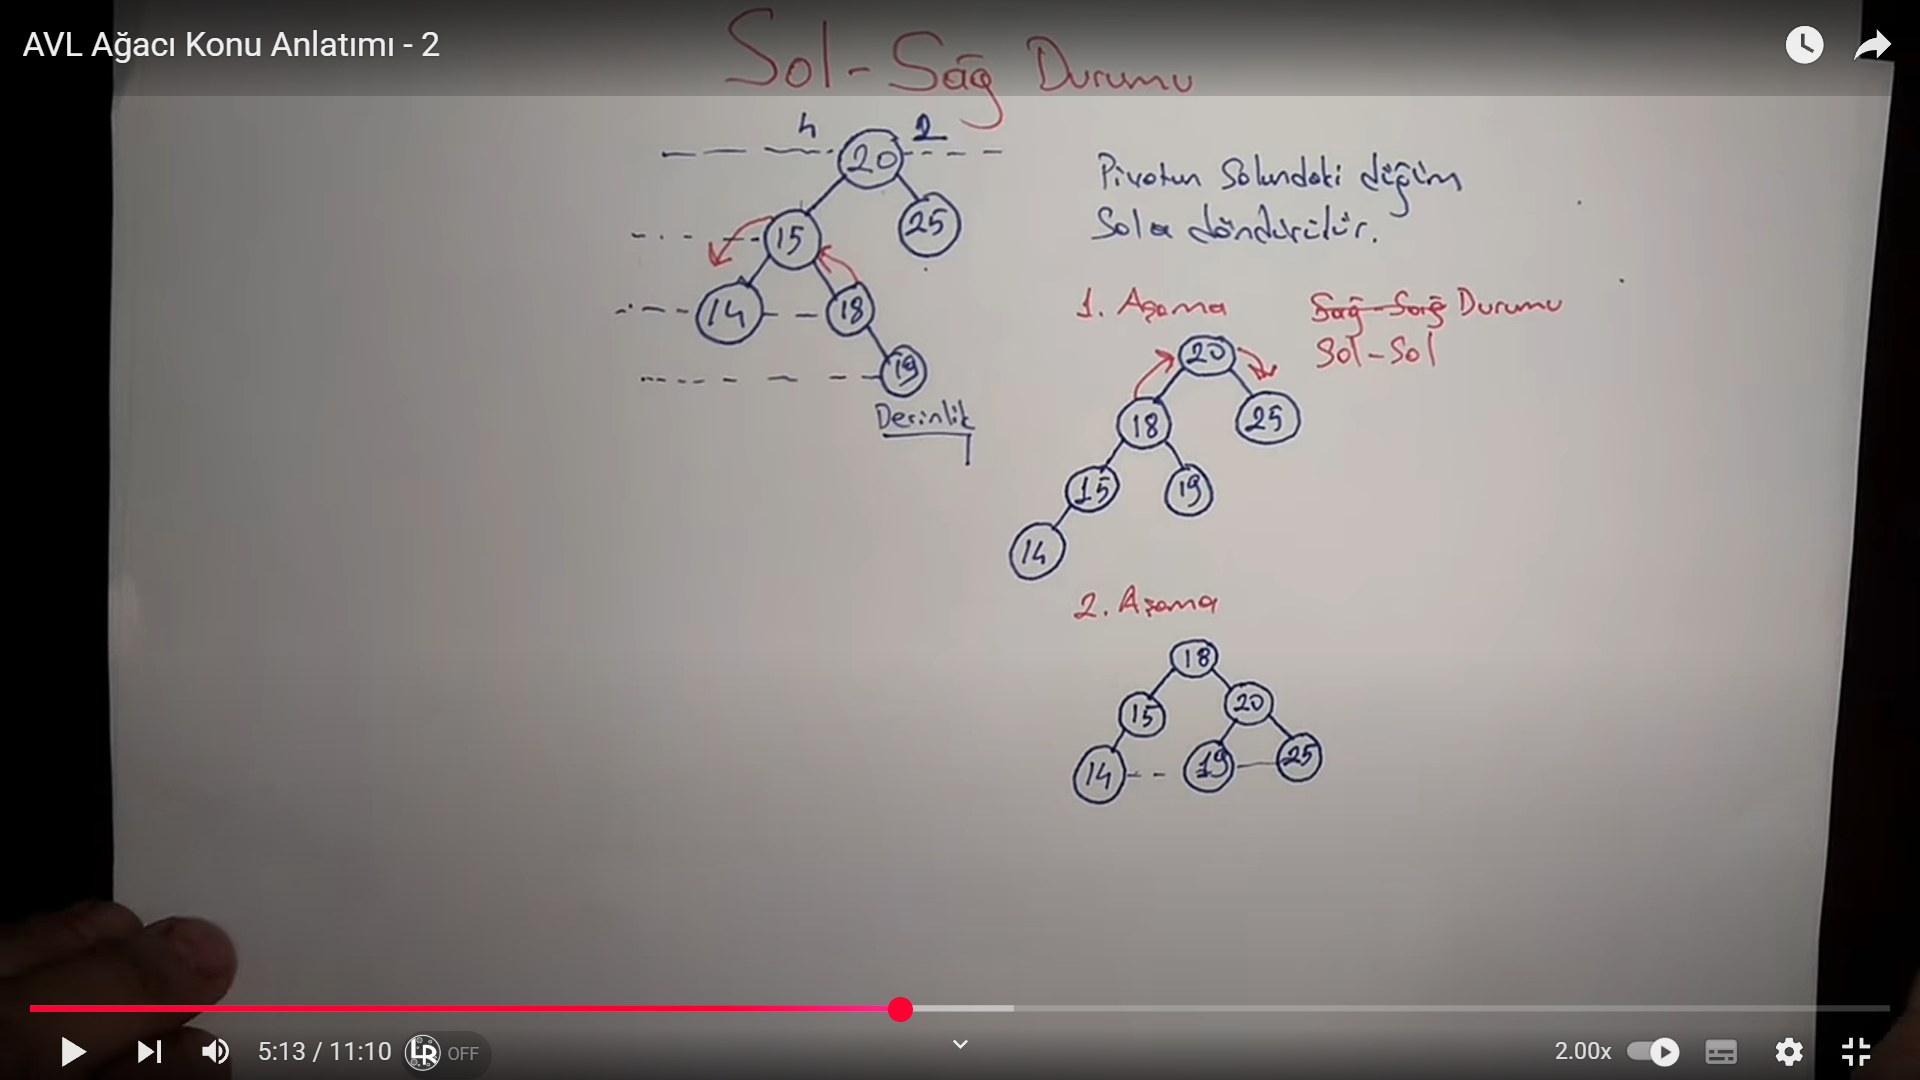 AVL Ağacı Konu Anlatımı - 2
Sol-Sağ Durumu
4 2
20
15
25
14
18
19
Derinlik
Pivotun Solundaki düğüm
Sola döndürülür.
1. Aşama
Sağ-Sağ Durumu
Sol-Sol
20
18
25
15
19
14
2. Aşama
18
15
20
14
19
25
5:13 / 11:10
LR OFF
2.00x